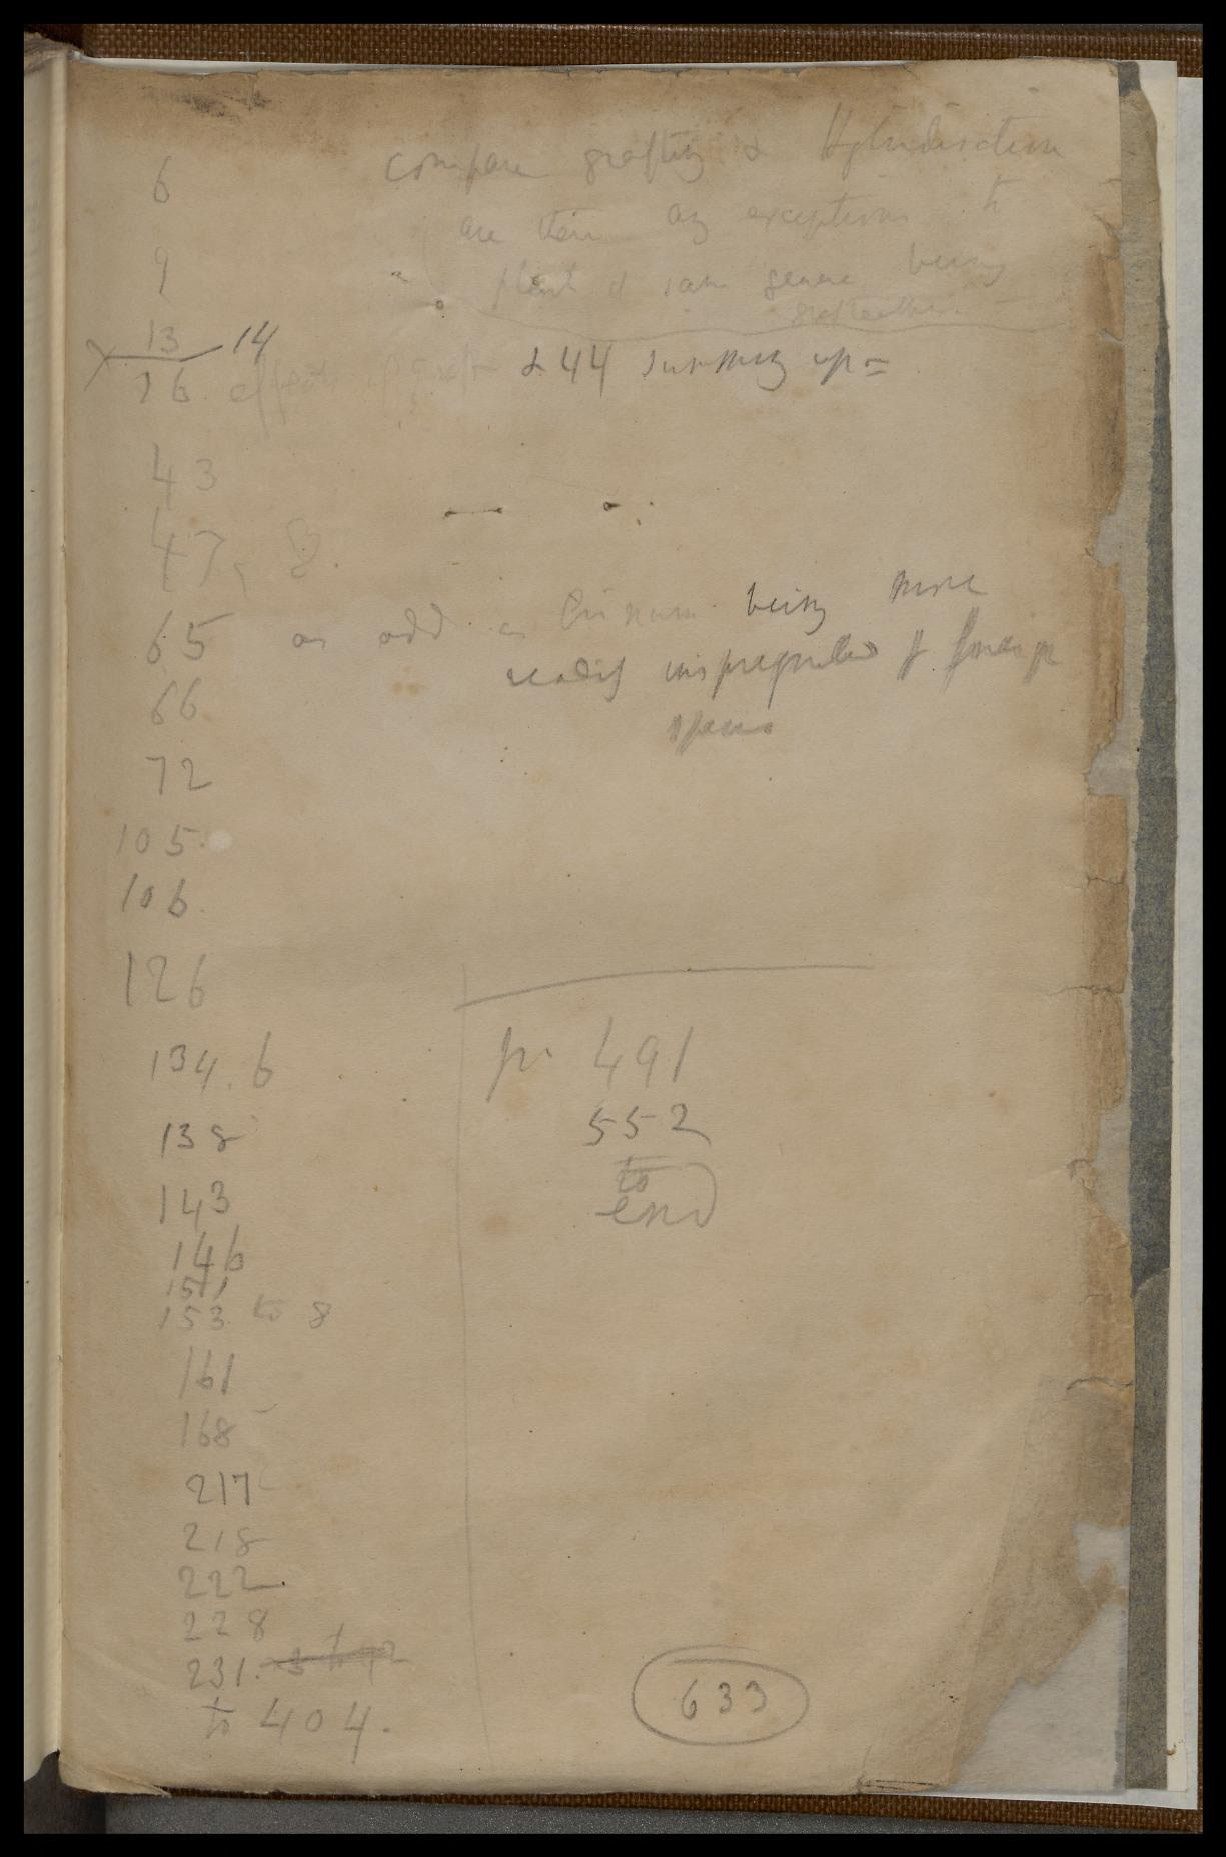 6 compare grafting & Hybridisation
are there any exceptions to
9 plants of same genera being
13 14
16 effects of graft & 44 summing up =
43
47, 8.
65 as odd as Crinum being more
readily impregnated by foreign
66
72
105.
106.
126
134. 6
138
143
146
151
153 to 8
161
168
217
218
222
228
231.
to 404.
p. 491
552
to
end
633